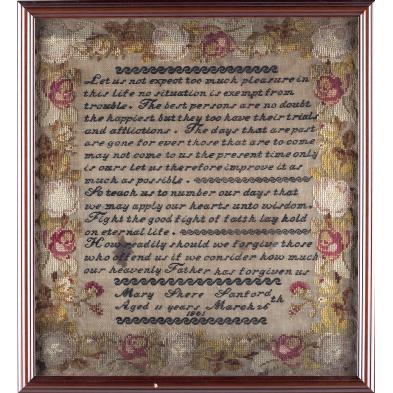 Let us not expect too much pleasure in
this life no situation is exempt from
trouble. The best persons are no doubt
the happiest but they too have their trials
and afflictions. The days that are past
are gone for ever those that are to come
may not come to us the present time only
is ours let us therefore improve it as
much as possible.
So teach us to number our days that
we may apply our hearts unto wisdom.
Fight the good fight of faith lay hold
on eternal life.
How readily should we forgive those
who offend us if we consider how much
our heavenly Father has forgiven us
Mary Shere Sanford
Aged 11 years March 26th
1861